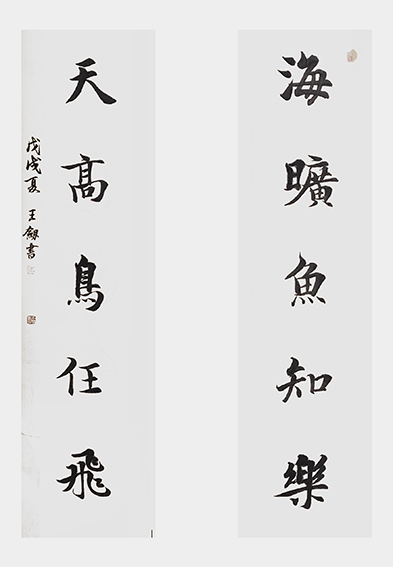 海曠魚知樂
天高鳥任飛
戊戌夏 王劔書